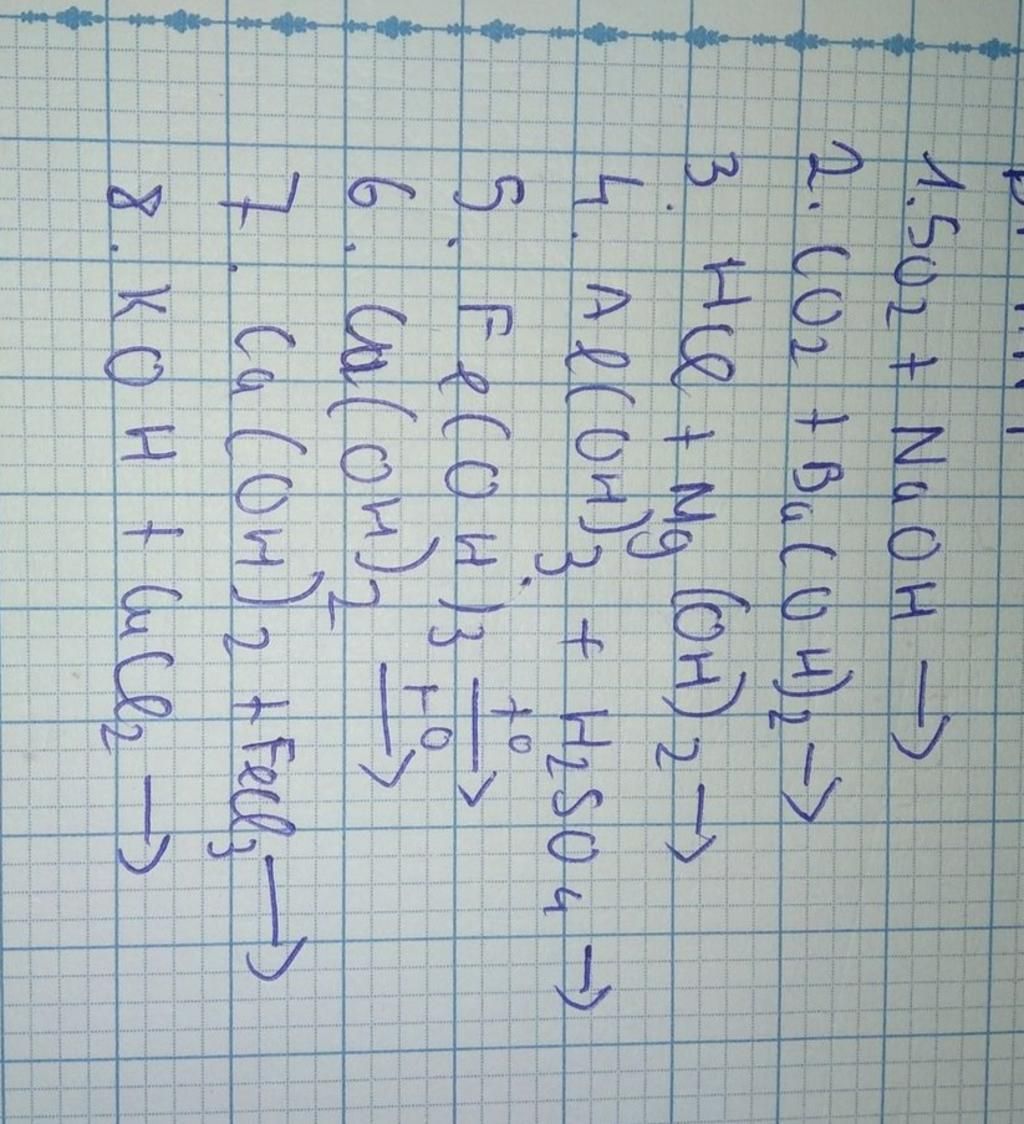 1. SO₂ + NaOH →
2. CO₂ + Ba(OH)₂ →
3. HCl + Mg(OH)₂ →
4. Al(OH)₃ + H₂SO₄ →
5. Fe(OH)₃ t⁰ →
6. Cu(OH)₂ t⁰ →
7. Ca(OH)₂ + FeCl₃ →
8. KOH + CuCl₂ →